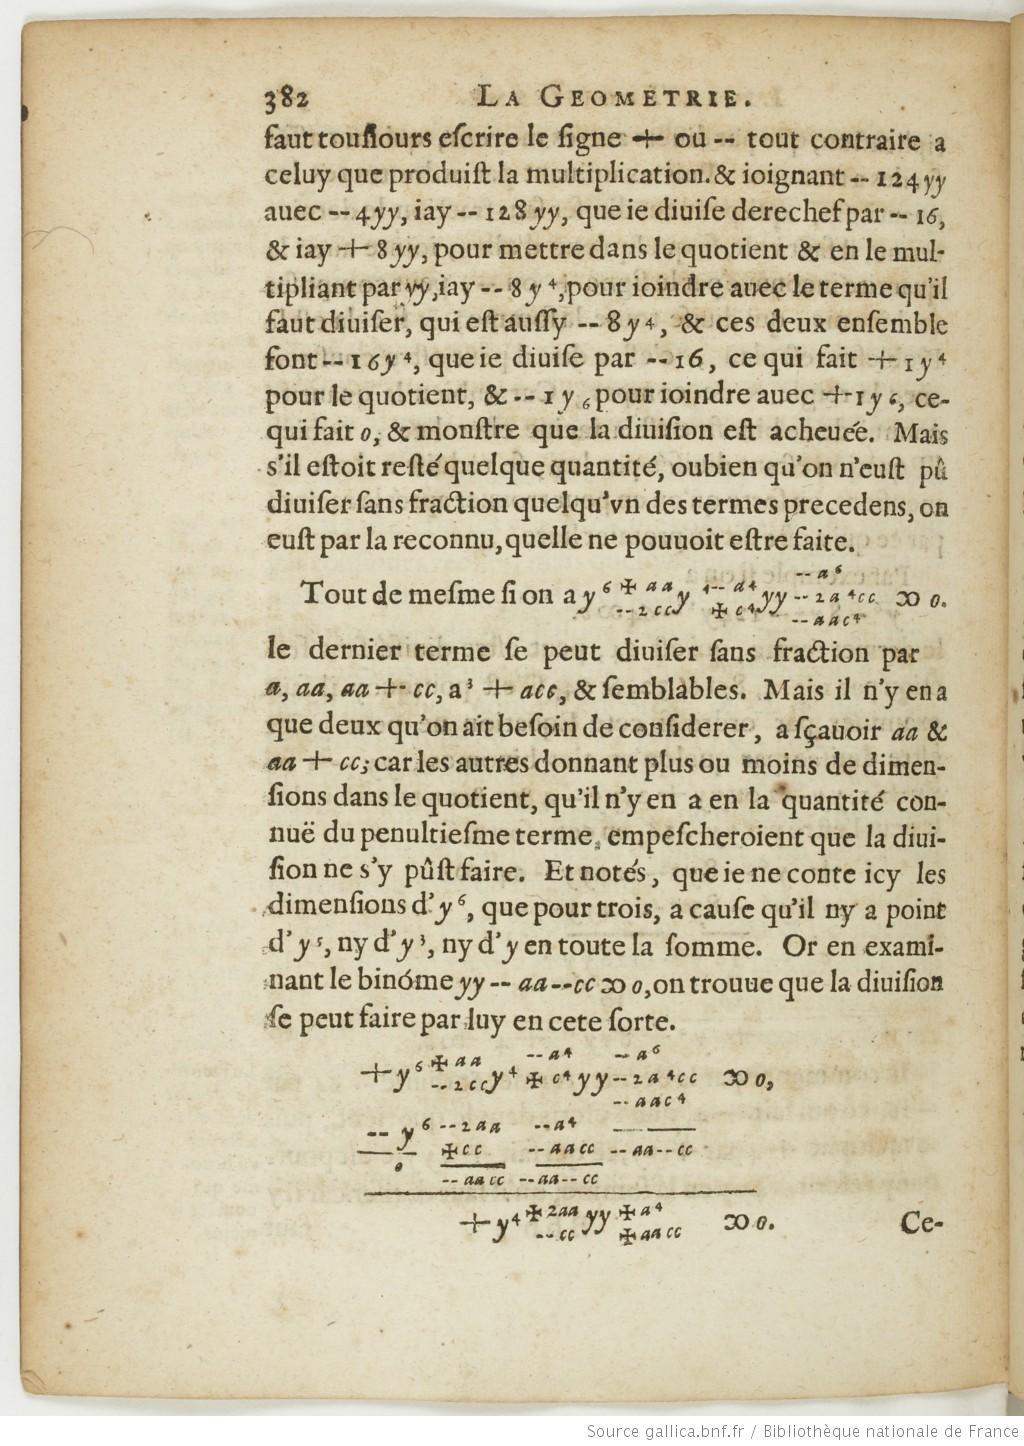 382 LA GEOMETRIE.
faut tousiours escrire le signe + ou -- tout contraire a
celuy que produist la multiplication. & ioignant -- 124 yy
auec -- 4yy, iay -- 128 yy, que ie diuise derechef par -- 16,
& iay + 8 yy, pour mettre dans le quotient & en le mul-
tipliant par yy, iay -- 8 y⁴, pour ioindre auec le terme qu'il
faut diuiser, qui est aussy -- 8 y⁴, & ces deux ensemble
font -- 16y⁴, que ie diuise par -- 16, ce qui fait + 1 y⁴
pour le quotient, & -- 1 y₆ pour ioindre auec + 1 y⁶, ce-
qui fait 0, & monstre que la diuision est acheuée. Mais
s'il estoit resté quelque quantité, oubien qu'on n'eust pû
diuiser sans fraction quelqu'vn des termes precedens, on
eust par la reconnu, quelle ne pouuoit estre faite.
-- a⁶
Tout de mesme si on a y⁶ ✠ aa y ⁴-- a⁴ yy -- 2a⁴cc ꝏ 0.
-- 2cc ✠ c⁴ -- aac⁴
le dernier terme se peut diuiser sans fraction par
a, aa, aa + cc, a³ + acc, & semblables. Mais il n'y en a
que deux qu'on ait besoin de considerer, a sçauoir aa &
aa + cc; car les autres donnant plus ou moins de dimen-
sions dans le quotient, qu'il n'y en a en la quantité con-
nuë du penultiesme terme, empescheroient que la diui-
sion ne s'y pûst faire. Et notés, que ie ne conte icy les
dimensions d'y⁶, que pour trois, a cause qu'il ny a point
d'y⁵, ny d'y³, ny d'y en toute la somme. Or en exami-
nant le binóme yy -- aa -- cc ꝏ 0, on trouue que la diuision
se peut faire par luy en cete sorte.
✠ aa -- a⁴ -- a⁶
+ y⁶ -- 2cc y⁴ ✠ c⁴ yy -- 2a⁴cc ꝏ 0,
-- aac⁴
-- y⁶ -- 2aa -- a⁴
0 ✠ cc -- aacc -- aa -- cc
-- aacc -- aa -- cc
+ y⁴ ✠ 2aa yy ✠ a⁴ ꝏ 0. Ce-
-- cc ✠ aacc
Source gallica.bnf.fr / Bibliothèque nationale de France